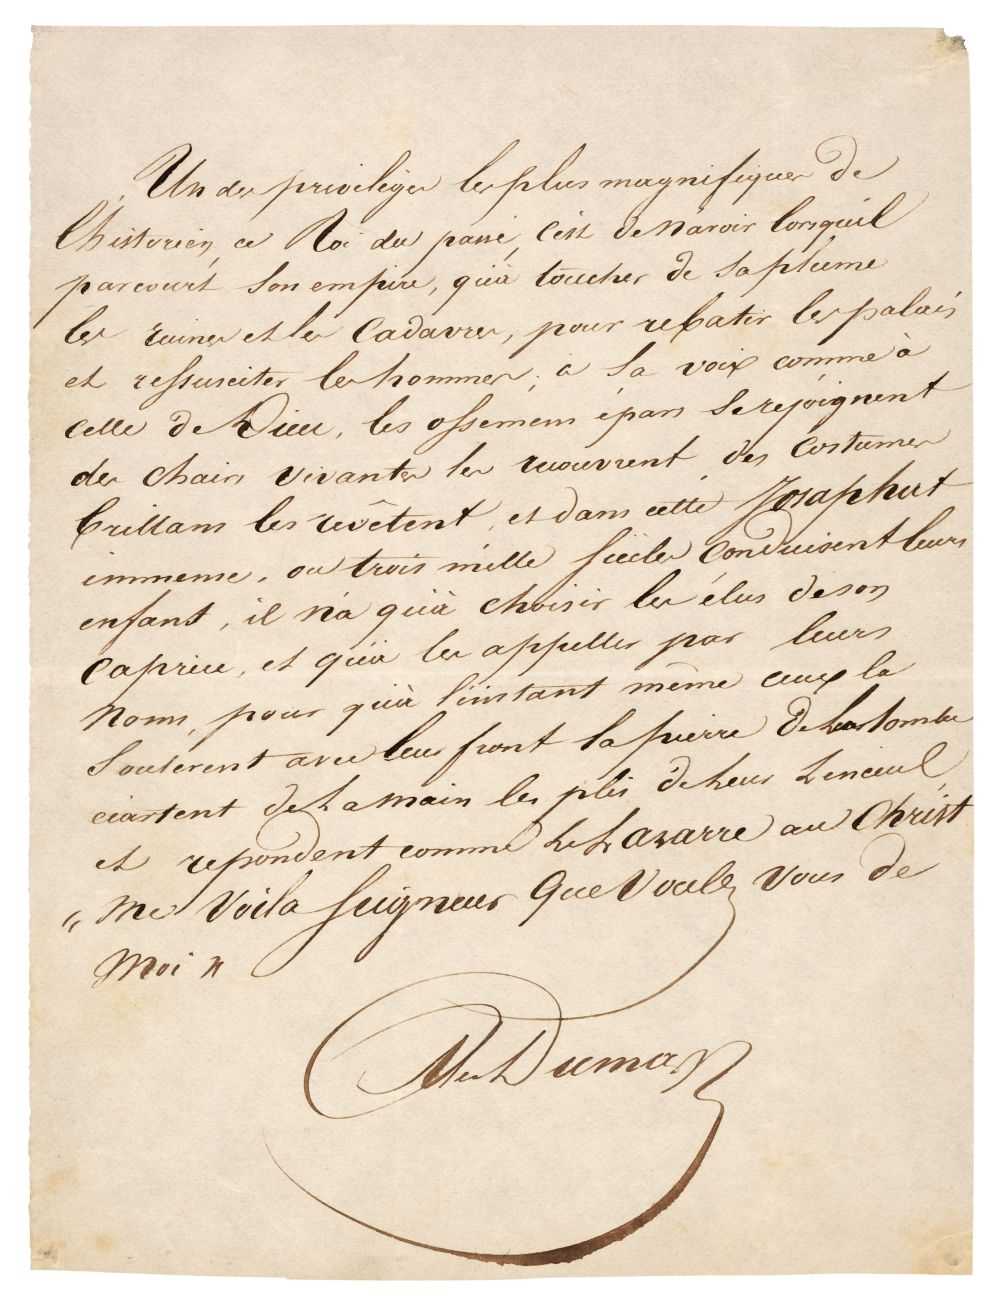 Un des priviléges les plus magnifiques de
l'historien, ce Roi du passé, c'est de n'avoir lorsqu'il
parcourt son empire, qu'à toucher de sa plume
les ruines et les cadavres, pour rebatir les palais
et ressusciter les hommes; a sa voix comme à
celle de Dieu, les ossemens épars se rejoignent
des chairs vivantes les recouvrent, des costumes
brillans les revêtent, et dans cette Josaphat
immense, ou trois mille siècles conduisent leurs
enfant, il n'a qu'à choisir les élus de son
caprice, et qu'à les appeller par leurs
noms, pour qu'à l'instant même ceux la
soulevent avec leur front la pierre de leur tombe
écartent de la main les plis de leur linceul
et repondent comme le Lazarre au Christ
« Me voila Seigneur que voulez vous de
Moi »
Alex Dumas